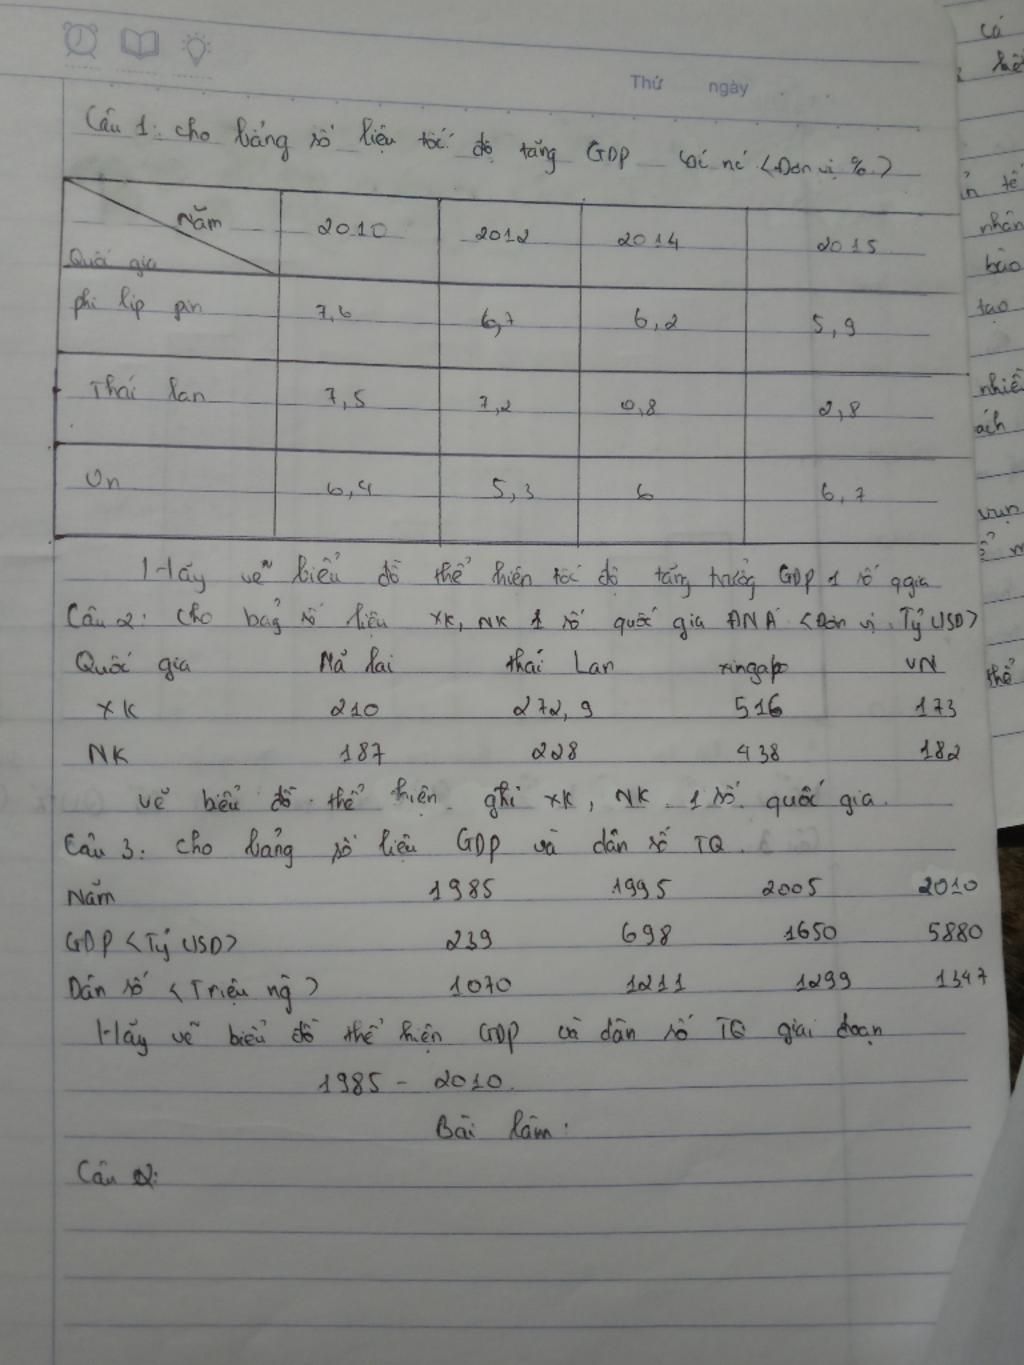 Thứ ngày
Câu 1: cho bảng số liệu tốc độ tăng GDP <Đơn vị %>
Năm 2010 2012 2014 2015
Quốc gia
phi lip pin 7,6 6,7 6,2 5,9
Thái lan 7,5 7,2 0,8 2,8
Vn 6,4 5,3 6 6,7
Hãy vẽ biểu đồ thể hiện tốc độ tăng trưởng GDP 1 số qgia
Câu 2: cho bảg số liệu XK, NK 1 số quốc gia ĐNÁ <Đơn vị: Tỷ USD>
Quốc gia Mã lai thái Lan xingapo VN
XK 210 272,9 516 173
NK 187 228 438 182
vẽ biểu đồ thể hiện ghi XK, NK 1 số quốc gia.
Câu 3: cho bảng số liệu GDP và dân số TQ.
Năm 1985 1995 2005 2010
GDP <Tỷ USD> 239 698 1650 5880
Dân số <Triệu ng> 1070 1211 1299 1347
Hãy vẽ biểu đồ thể hiện GDP và dân số TQ giai đoạn
1985 - 2010.
Bài làm:
Câu 2:
cá
tế
nhân
bào
tạo
nhiề
ách
thể